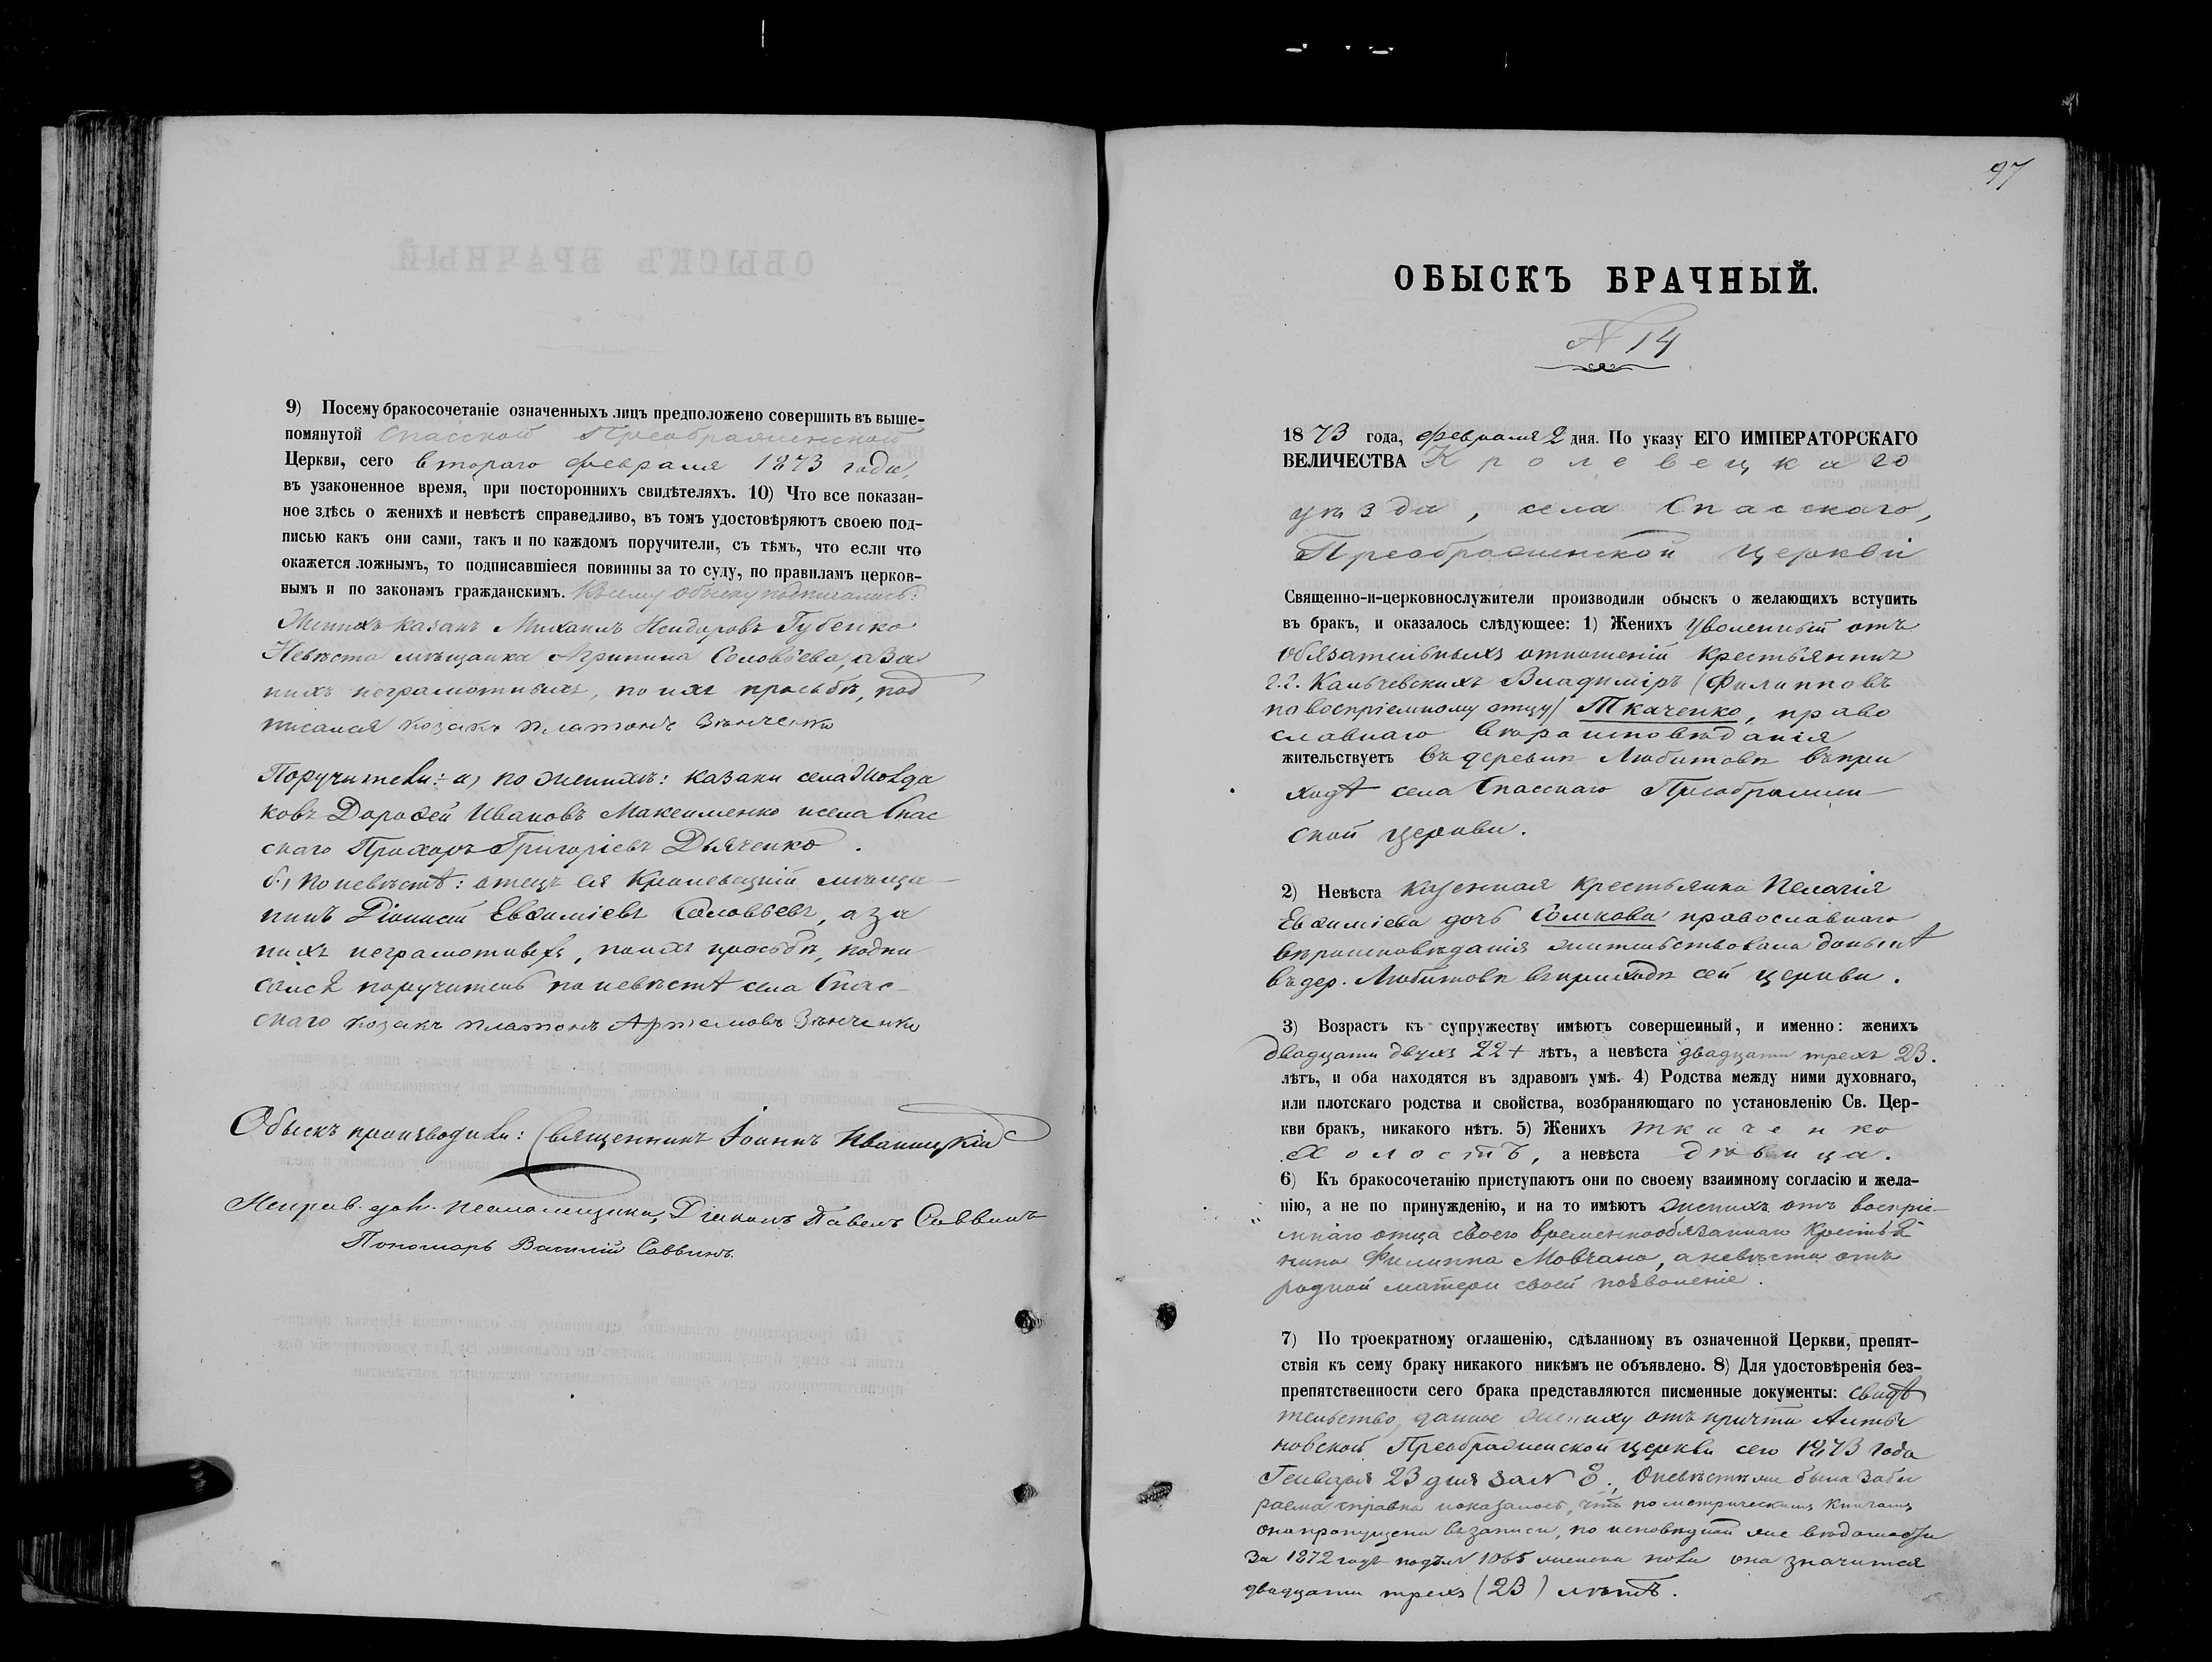 9) Посему бракосочетаніе означенныхъ лицъ предположено совершить въ выше-
помянутой Спасской Преображенской
Церкви, сего втораго февраля 1873 года,
въ узаконенное время, при постороннихъ свидѣтеляхъ. 10) Что все показан-
ное здѣсь о женихѣ и невѣстѣ справедливо, въ томъ удостовѣряютъ своею под-
писью какъ они сами, такъ и по каждомъ поручители, съ тѣмъ, что если что
окажется ложнымъ, то подписавшіеся повинны за то суду, по правиламъ церков-
нымъ и по законамъ гражданскимъ. Къ сему обыску подписались:
Женихъ казакъ Михаилъ Исидоровъ Губенко
Невѣста мѣщанка Агрипина Соловьева, а за
нихъ неграмотныхъ, по ихъ просьбѣ, под
писался козакъ Платонъ Зѣнченко
Поручители: а) по женихѣ: казаки села
ковъ Дорофей Ивановъ Максименко и села Спас
скаго Прохоръ Григоріевъ Дьяченко.
б) по невѣстѣ: отецъ ея Кролевецкій мѣща
нинъ Діонисій Евфиміевъ Соловьевъ, а за
нихъ неграмотныхъ, по ихъ просьбѣ, подпи
сался поручитель по невѣстѣ села Спас-
скаго козакъ Платонъ Артемовъ Зѣнченко
Обыскъ производили: Священникъ Іоаннъ Иваницкій
Исправ. долж. псаломщика, Діаконъ Павелъ Саввинъ
Пономарь Василій Саввинъ
97
ОБЫСКЪ БРАЧНЫЙ.
N 14
1873 года, февраля 2 дня. По указу ЕГО ИМПЕРАТОРСКАГО
ВЕЛИЧЕСТВА Кролевецкаго
уѣзда, села Спасскаго,
Преображенской Церкви
Священно-и-церковнослужители производили обыскъ о желающихъ вступить
въ бракъ, и оказалось слѣдующее: 1) Женихъ уволенный отъ
обязательныхъ отношеній крестьянинъ
г.г. Владиміръ (Филипповъ
по воспріемному отцу) Ткаченко, право
славнаго вѣроисповѣданія
жительствуетъ въ деревнѣ Любитовѣ въ при
ходѣ села Спасскаго Преображен
ской церкви.
2) Невѣста казенная крестьянка Пелагія
Евфиміева дочь Сомкова православнаго
вѣроисповѣданія жительствовала донынѣ
въ дер. Любитовѣ въ приходѣ сей церкви.
3) Возрастъ къ супружеству имѣютъ совершенный, и именно: женихъ
двадцати двухъ 22 + лѣтъ, а невѣста двадцати трехъ 23.
лѣтъ, и оба находятся въ здравомъ умѣ. 4) Родства между ними духовнаго,
или плотскаго родства и свойства, возбраняющаго по установленію Св. Цер-
кви бракъ, никакого нѣтъ. 5) Женихъ Ткаченко
холостъ, а невѣста дѣвица.
6) Къ бракосочетанію приступаютъ они по своему взаимному согласію и жела-
нію, а не по принужденію, и на то имѣютъ женихъ отъ воспріе-
мнаго отца своего временнообязаннаго крестья
нина Филиппа Мовчана, а невѣста отъ
родной матери своей позволеніе.
7) По троекратному оглашенію, сдѣланному въ означенной Церкви, препят-
ствія къ сему браку никакого никѣмъ не объявлено. 8) Для удостовѣренія без-
препятственности сего брака представляются писменные документы: свидѣ
тельство, данное жениху отъ причта Алты
новской Преображенской церкви сего 1873 года
Генваря 23 дня за N 8. О невѣстѣ же была заби
раема справка показалось, что по метрическимъ книгамъ
она пропущена въ записи, по исповѣдной же вѣдомости
за 1872 годъ подъ N 1065 она значится
двадцати трехъ (23) лѣтъ.